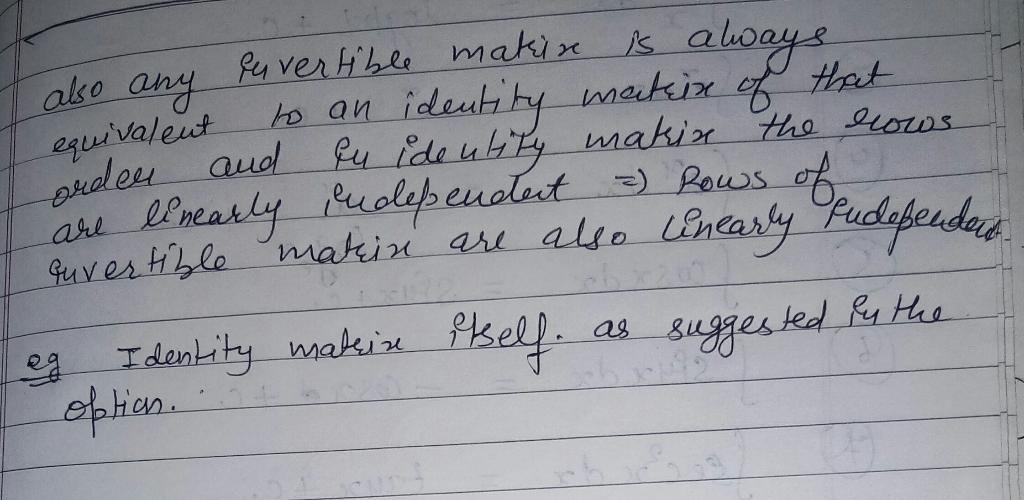 also any invertible matrix is always
equivalent to an identity matrix of that
order and in identity matrix the rows
are linearly independent => Rows of
invertible matrix are also linearly independent
eg Identity matrix itself. as suggested in the
option.